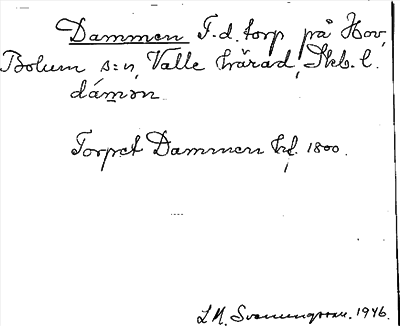 Dammen F.d. torp på Hov,
Bolum s:n, Valle härad, Skb. l.
dámən
Torpet Dammen 1800.
L M. Svenungsson. 1946.